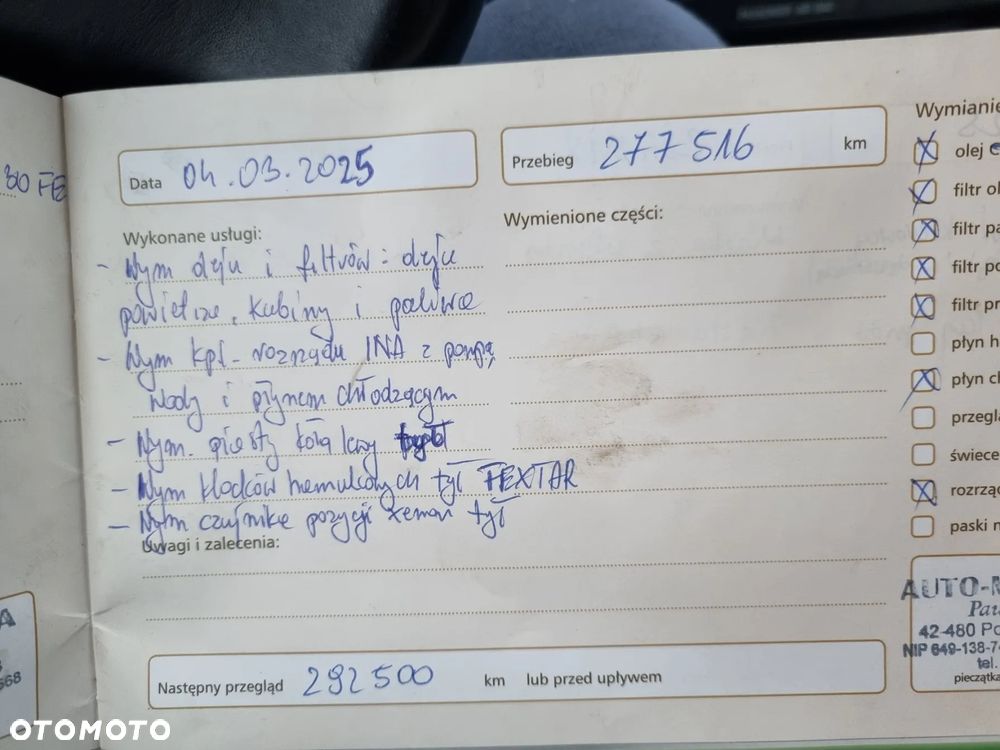 80 FE
Data 04.03.2025
Przebieg 277516 km
Wymianie
olej
filtr ol
filtr pa
filtr po
filtr pr
płyn h
płyn ch
przeglą
świece
rozrzą
paski n
Wykonane usługi:
Wymienione części:
- Wym oleju i filtrów: oleju
powietrze, kabiny i paliwa
- Wym kpl. rozrządu INA z pompą
wody i płynem chłodzącym
- Wym. piasty koła lewy tył
- Wym klocków hamulcowych tył TEXTAR
- Wym czujnika pozycji zeman tył
Uwagi i zalecenia:
Następny przegląd 292500 km lub przed upływem
AUTO-
42-480 Po
NIP 649-138-7
tel.
pieczątka
A
668
OTOMOTO